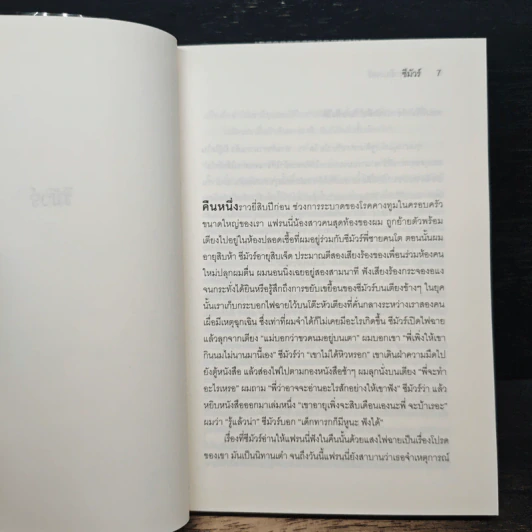 ซีมัวร์ 7
คืนหนึ่งราวยี่สิบปีก่อน ช่วงการระบาดของโรคคางทูมในครอบครัว
ขนาดใหญ่ของเรา แฟรนนี่น้องสาวคนสุดท้องของผม ถูกย้ายตัวพร้อม
เตียงไปอยู่ในห้องปลอดเชื้อที่ผมอยู่ร่วมกับซีมัวร์พี่ชายคนโต ตอนนั้นผม
อายุสิบห้า ซีมัวร์อายุสิบเจ็ด ประมาณตีสองเสียงร้องของเพื่อนร่วมห้องคน
ใหม่ปลุกผมตื่น ผมนอนนิ่งเฉยอยู่สองสามนาที ฟังเสียงร้องกระจองอแง
จนกระทั่งได้ยินหรือรู้สึกถึงการขยับเขยื้อนของซีมัวร์บนเตียงข้างๆ ในยุค
นั้นเราเก็บกระบอกไฟฉายไว้บนโต๊ะหัวเตียงที่คั่นกลางระหว่างเราสองคน
เผื่อมีเหตุฉุกเฉิน ซึ่งเท่าที่ผมจำได้ก็ไม่เคยมีอะไรเกิดขึ้น ซีมัวร์เปิดไฟฉาย
แล้วลุกจากเตียง “แม่บอกว่าขวดนมอยู่บนเตา” ผมบอกเขา “พี่เพิ่งให้เขา
กินนมไม่นานมานี้เอง” ซีมัวร์ว่า “เขาไม่ได้หิวหรอก” เขาเดินฝ่าความมืดไป
ยังตู้หนังสือ แล้วส่องไฟไปตามกองหนังสือช้าๆ ผมลุกนั่งบนเตียง “พี่จะทำ
อะไรเหรอ” ผมถาม “พี่ว่าอาจจะอ่านอะไรสักอย่างให้เขาฟัง” ซีมัวร์ว่า แล้ว
หยิบหนังสือออกมาเล่มหนึ่ง “เขาอายุเพิ่งจะสิบเดือนเองนะพี่ จะบ้าเรอะ”
ผมว่า “รู้แล้วน่า” ซีมัวร์บอก “เด็กทารกก็มีหูนะ ฟังได้”
เรื่องที่ซีมัวร์อ่านให้แฟรนนี่ฟังในคืนนั้นด้วยแสงไฟฉายเป็นเรื่องโปรด
ของเขา มันเป็นนิทานเต๋า จนถึงวันนี้แฟรนนี่ยังสาบานว่าเธอจำเหตุการณ์